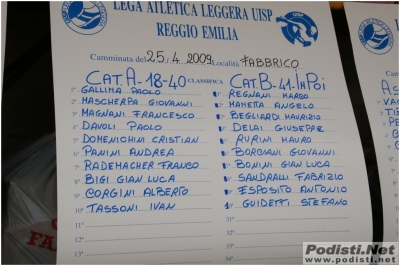 LEGA ATLETICA LEGGERA UISP
REGGIO EMILIA
Camminata del 25/4 2009 Località FABBRICO
CAT A-18-40 CLASSIFICA CAT B-41-IN POI
1° GALLIMA PAOLO 1° REGNANI MARBO
2° MASCHERPA GIOVANNI MAMETA ANGELO
3° MAGNANI FRANCESCO BEGLIARDI MAURIZIO
4° DAVOLI PAOLO DELAI GIUSEPPE
5° DOMENICHINI CRISTIAN RURINI MAURO
6° PANINI ANDREA BORCIANI GIOVANNI
7° RADEMACHER FRANCO BONINI GIAN LUCA
8° BIGI GIAN LUCA SANDRALLI FABRIZIO
9° CORGINI ALBERTO ESPOSITO ANTONIO
10° TASSONI IVAN GUIDETTI STEFANO
11° 31°
12°
13°
14° 34°
Podisti.Net
www.podisti.net